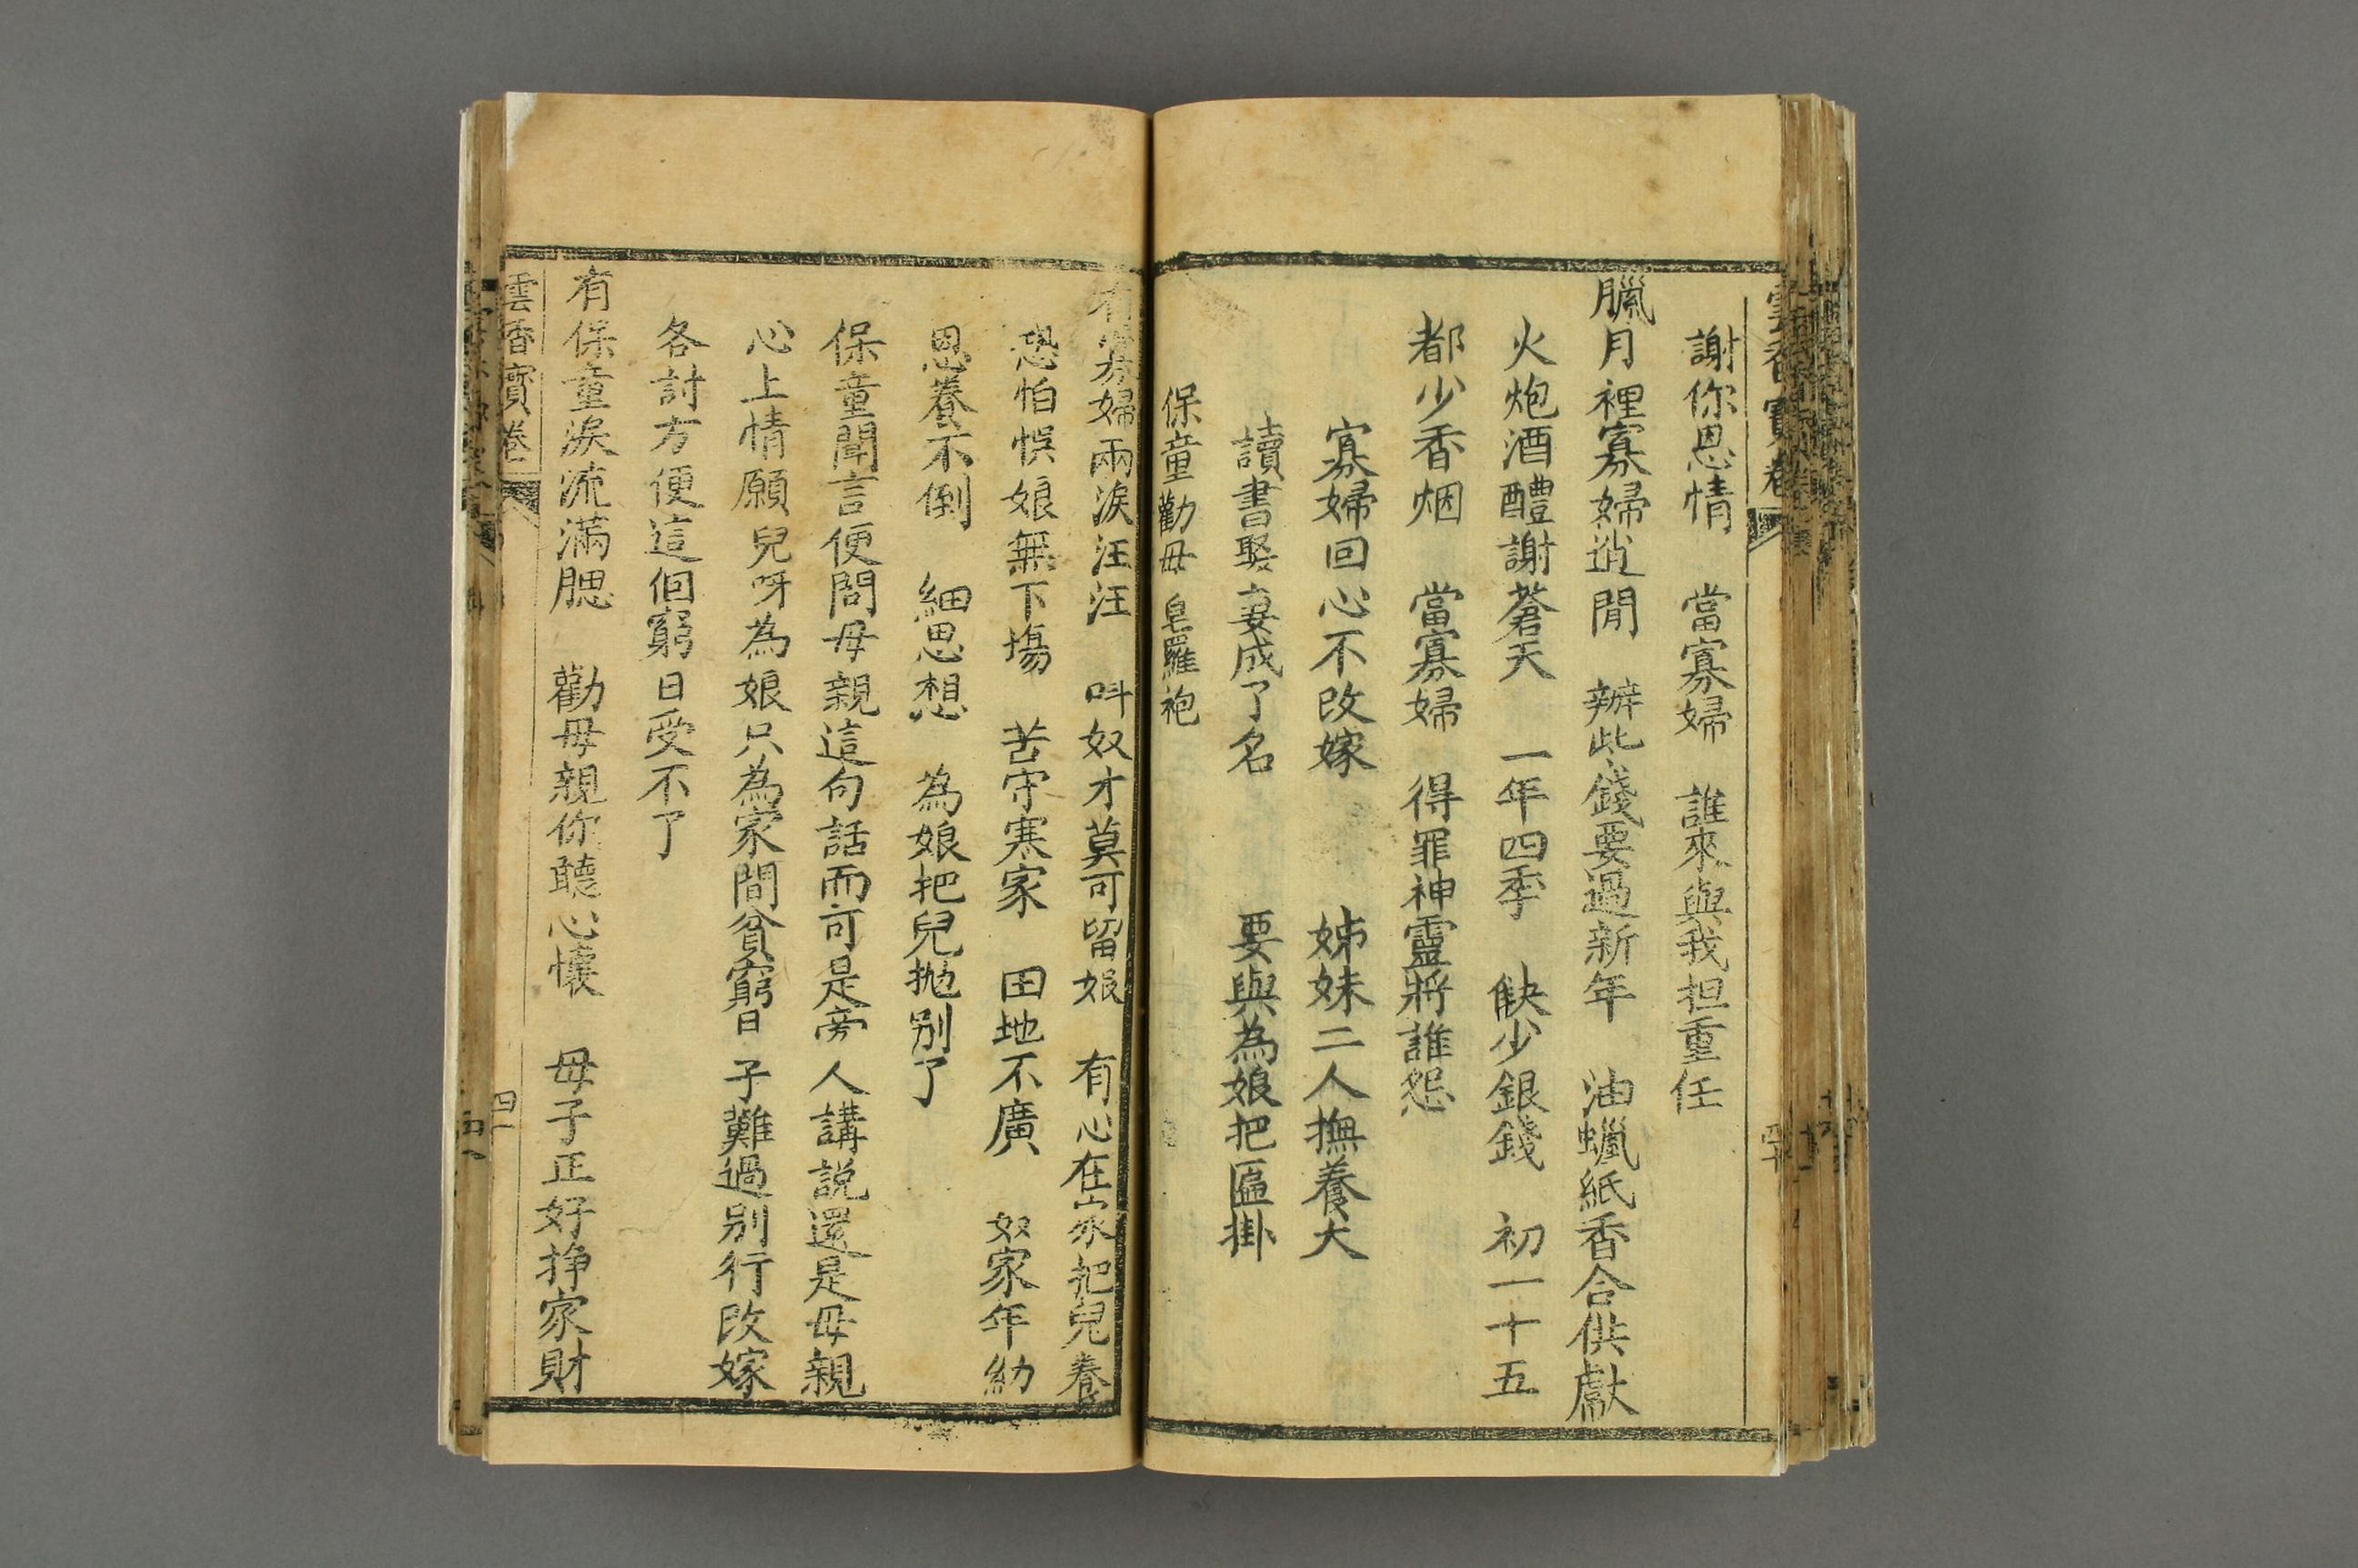 雲香寶卷
謝你恩情 當寡婦 誰來與我担重任
臘月裡寡婦逍閒 辦些錢要過新年 油蠟紙香合供獻
火炮酒醴謝蒼天 一年四季 缺少銀錢 初一十五
都少香烟 當寡婦 得罪神靈將誰怨
寡婦回心不改嫁 姊妹二人撫養大
讀書娶妻成了名 要與為娘把匾掛
保童勸母 皂羅袍
婦兩淚汪汪 呌奴才莫可留娘 有心在家把兒養
恐怕悞娘無下塲 苦守寒家 田地不廣 奴家年紉
恩養不倒 細思想 為娘把兒抛別了
保童聞言便問母親這句話而可是旁人講説還是母親
心上情願兒呀為娘只為家間貧窮日子難過別行改嫁
各討方便這個窮日受不了
有保童淚流滿腮 勸母親你聽心懷 母子正好挣家財
雲香寶卷
四一